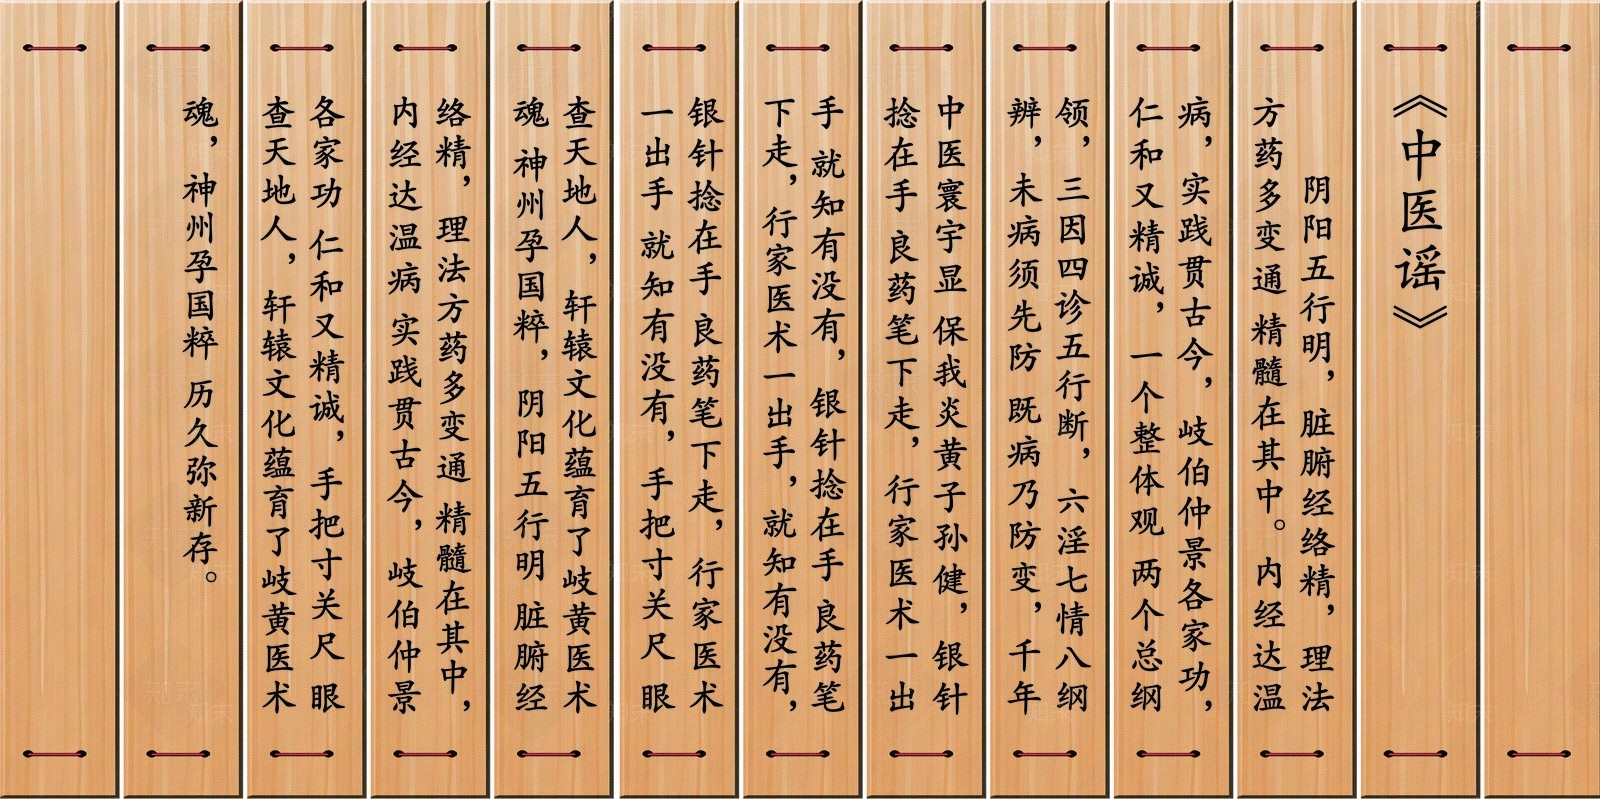 《中医谣》
阴阳五行明，脏腑经络精，理法
方药多变通 精髓在其中。内经达温
病，实践贯古今，岐伯仲景各家功，
仁和又精诚，一个整体观 两个总纲
领，三因四诊五行断，六淫七情八纲
辨，未病须先防 既病乃防变，千年
中医寰宇显 保我炎黄子孙健，银针
捻在手 良药笔下走，行家医术一出
手 就知有没有，银针捻在手 良药笔
下走，行家医术一出手，就知有没有，
银针捻在手 良药笔下走，行家医术
一出手 就知有没有，手把寸关尺 眼
查天地人，轩辕文化蕴育了岐黄医术
魂 神州孕国粹，阴阳五行明 脏腑经
络精，理法方药多变通 精髓在其中，
内经达温病 实践贯古今，岐伯仲景
各家功 仁和又精诚，手把寸关尺 眼
查天地人，轩辕文化蕴育了岐黄医术
魂，神州孕国粹 历久弥新存。